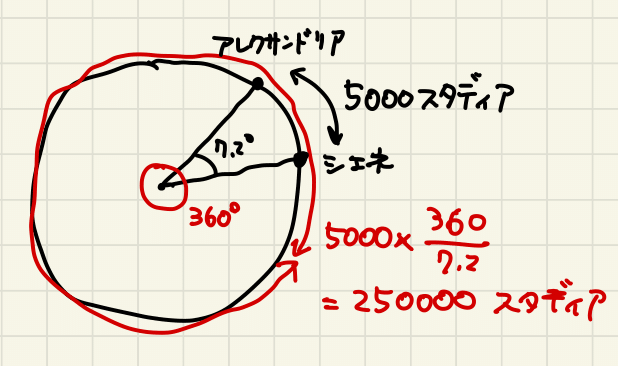 アレクサンドリア
5000スタディア
7.2°
シエネ
360°
5000× 360/7.2
= 250000 スタディア